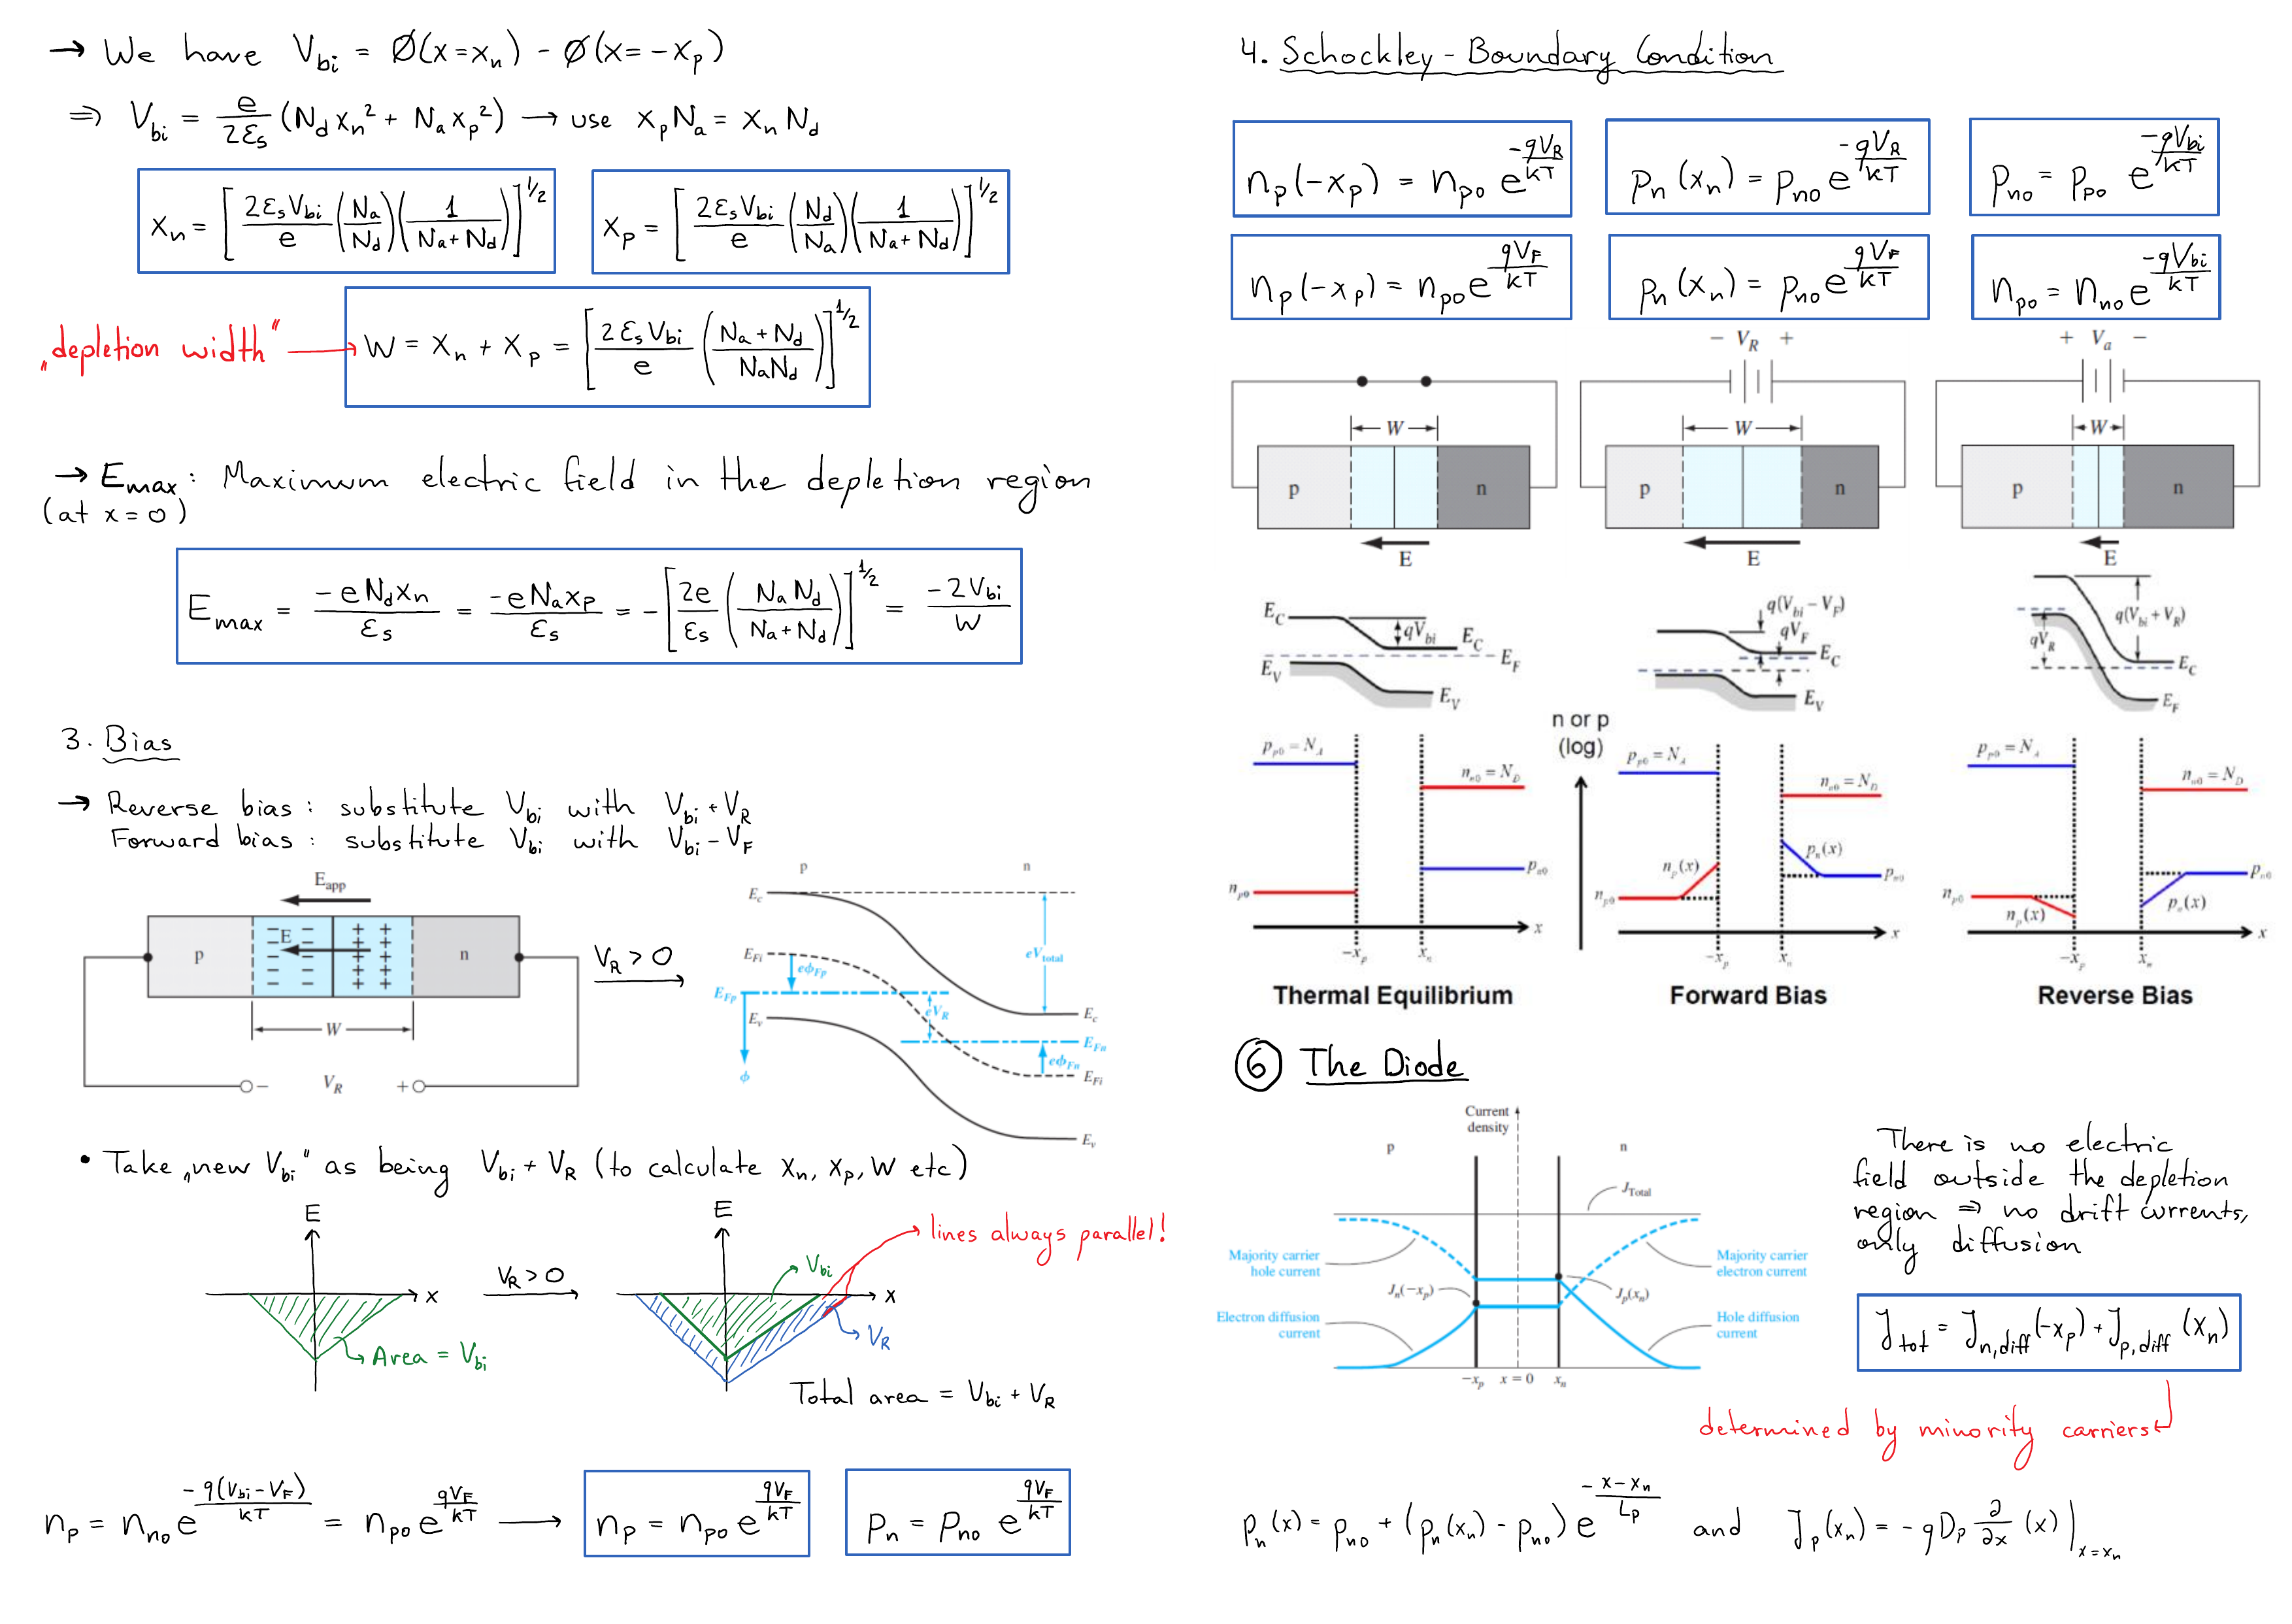 → We have V_bi = Ø(x=x_n) - Ø(x=-x_p)
⇒ V_bi = e/2ε_s (N_d x_n² + N_a x_p²) → use x_p N_a = x_n N_d
x_n = [2ε_s V_bi/e (N_a/N_d)(1/(N_a+N_d))]^1/2
x_p = [2ε_s V_bi/e (N_d/N_a)(1/(N_a+N_d))]^1/2
„depletion width" → W = x_n + x_p = [2ε_s V_bi/e ((N_a+N_d)/(N_a N_d))]^1/2
→ E_max : Maximum electric field in the depletion region
(at x=0)
E_max = -eN_d x_n/ε_s = -eN_a x_p/ε_s = -[2e/ε_s (N_a N_d/(N_a+N_d))]^1/2 = -2V_bi/W
3. Bias
→ Reverse bias : substitute V_bi with V_bi + V_R
Forward bias : substitute V_bi with V_bi - V_F
E_app
p E n
- - - - - - - - - -
+ + + + + + + + + +
W
- V_R +
V_R > 0
p n
E_c
E_Fi eφ_Fp
E_Fp
E_v
φ
eV_total
eV_R
E_c
E_Fn
eφ_Fn
E_Fi
E_v
• Take „new V_bi" as being V_bi + V_R (to calculate x_n, x_p, W etc)
E x
Area = V_bi
V_R > 0
E x
V_bi
V_R
lines always parallel!
Total area = V_bi + V_R
n_p = n_no e^(-q(V_bi-V_F)/kT) = n_po e^(qV_F/kT) →
n_p = n_po e^(qV_F/kT)
p_n = p_no e^(qV_F/kT)
4. Schockley-Boundary Condition
n_p(-x_p) = n_po e^(-qV_R/kT)
p_n(x_n) = p_no e^(-qV_R/kT)
p_no = p_po e^(-qV_bi/kT)
n_p(-x_p) = n_po e^(qV_F/kT)
p_n(x_n) = p_no e^(qV_F/kT)
n_po = n_no e^(-qV_bi/kT)
- V_R +
+ V_a -
W
W
W
p n
p n
p n
E
E
E
E_C qV_bi E_C
E_F
E_V
E_V
q(V_bi - V_F)
qV_F
E_C
E_V
q(V_bi + V_R)
qV_R
E_C
E_F
n or p
(log)
p_p0 = N_A
n_n0 = N_D
n_p0
p_n0
-x_p x_n x
p_p0 = N_A
n_n0 = N_D
n_p(x)
p_n(x)
n_p0
p_n0
-x_p x_n x
p_p0 = N_A
n_n0 = N_D
n_p0
n_p(x)
p_n(x)
p_n0
-x_p x_n x
Thermal Equilibrium
Forward Bias
Reverse Bias
6 The Diode
Current
density
p n
J_Total
Majority carrier
hole current
Majority carrier
electron current
J_n(-x_p)
J_p(x_n)
Electron diffusion
current
Hole diffusion
current
-x_p x = 0 x_n
There is no electric
field outside the depletion
region ⇒ no drift currents,
only diffusion
J_tot = J_n,diff(-x_p) + J_p,diff(x_n)
determined by minority carriers
p_n(x) = p_no + (p_n(x_n) - p_no) e^(-(x-x_n)/L_p) and J_p(x_n) = -qD_p ∂/∂x (x)|_x=x_n